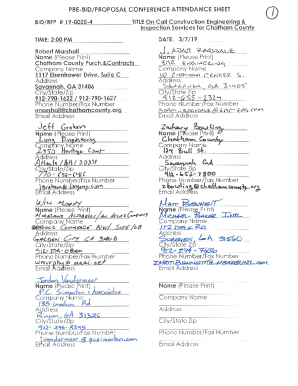 PRE-BID/PROPOSAL CONFERENCE ATTENDANCE SHEET
1
BID/RFP # 19-0025-4
TITLE On Call Construction Engineering &
Inspection Services for Chatham County
TIME: 2:00 PM
DATE: 3/7/19
Robert Marshall
Name (Please Print)
Chatham County Purch & Contracts
Company Name
1117 Eisenhower Drive, Suite C
Address
Savannah, GA 31406
City/State/Zip
912-790-1622 / 912-790-1627
Phone Number/Fax Number
rmarshall@chathamcounty.org
Email Address
J. Adam Ragsdale
Name (Please Print)
Engineering
Company Name
Address
Savannah, GA 31405
City/State/Zip
912-655-2324
Phone Number/Fax Number
Email Address
Jeff Graham
Name (Please Print)
Long Engineering
Company Name
2550 Heritage Court
Address
Atlanta, GA
City/State/Zip
Phone Number/Fax Number
Email Address
Zachary Bowling
Name (Please Print)
Chatham County
Company Name
124 Bull St.
Address
Savannah Ga
City/State/Zip
912-652-7800
Phone Number/Fax Number
zbowling@chathamcounty.org
Email Address
Will Murphy
Name (Please Print)
Company Name
Commerce Blvd
Address
Garden City GA
City/State/Zip
Phone Number/Fax Number
Email Address
Matt Bennett
Name (Please Print)
Michael Baker Intl.
Company Name
Address
Savannah, GA
City/State/Zip
912-
Phone Number/Fax Number
Email Address
Jordan Vandermeer
Name (Please Print)
P.C. Simonton & Associates
Company Name
Rd
Address
Rincon, GA 31326
City/State/Zip
912-
Phone Number/Fax Number
jvandermeer@pcsimonton.com
Email Address
Name (Please Print)
Company Name
Address
City/State/Zip
Phone Number/Fax Number
Email Address